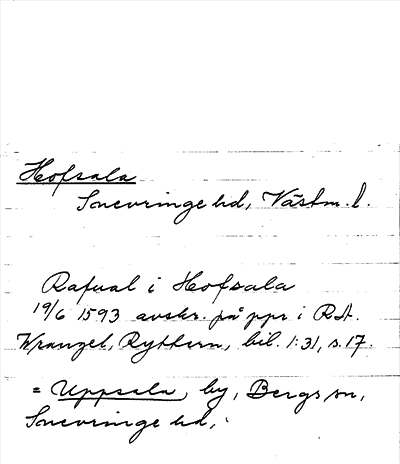 Hofsala
Snevringe hd, Västm. l.
Rafual i Hofsala
19/6 1593 avskr. på ppr i RA.
Wrangel, Ryttern, bil. 1:31, s. 17.
= Uppsala, by, Bergs sn,
Snevringe hd,